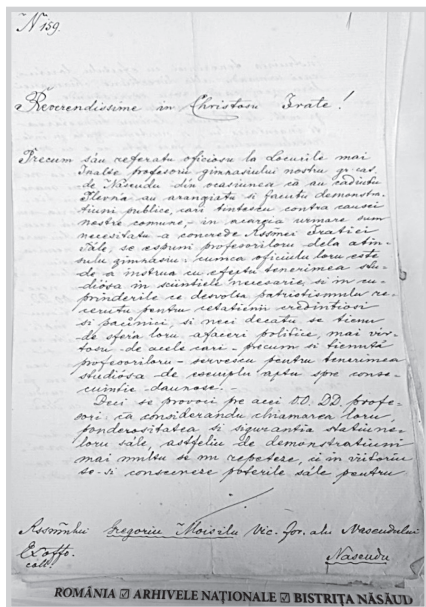 N 159.
Reverendissime in Christosu Frate!
Precum s'au referatu oficiosu la Locurile mai
Inalte profesorii gimnasiului nostru gr. cat.
de Năsĕudu din ocasiunea că au cadiutu
Plevna au arangiatu si facutu demonstra-
tiuni publice, cari tintescu contra causei
nostre comune, in acarei'a urmare sum
necesitatu a concrede Rssmei Fratiei
Tale, se espuni profesoriloru dela atin-
sulu gimnasiu: cumca oficiulu loru este
de a instrua cu efeptu tenerimea stu-
diosa in scientiele necesarie, si in cu-
prinderile ce desvolta patriotismulu re-
cerutu pentru cetatieni credintiosi
si pacinici, si neci decatu se tienu
de sfera loru afaceri politice, mai vîr-
tosu de acele cari – precum si tienut'a
profesoriloru – servescu pentru tenerimea
studiosa de esemplu aptu spre conse-
cuintie daunose. –
Deci se provoci pre acei O.O. D.D. profe-
sori: ca considerandu chiamarea loru
ponderositatea si sigurantia statiunei
loru sale, astfeliu de demonstratiuni
mai multu se nu repetese, ci in viitoriu
se-si consecrese poterile sale pentru
Rssmului Gregoriu Moisilu Vic. for. alu Nascudului
Ex offo.
Născudu
ROMÂNIA ☑ ARHIVELE NAȚIONALE ☑ BISTRIȚA NĂSĂUD